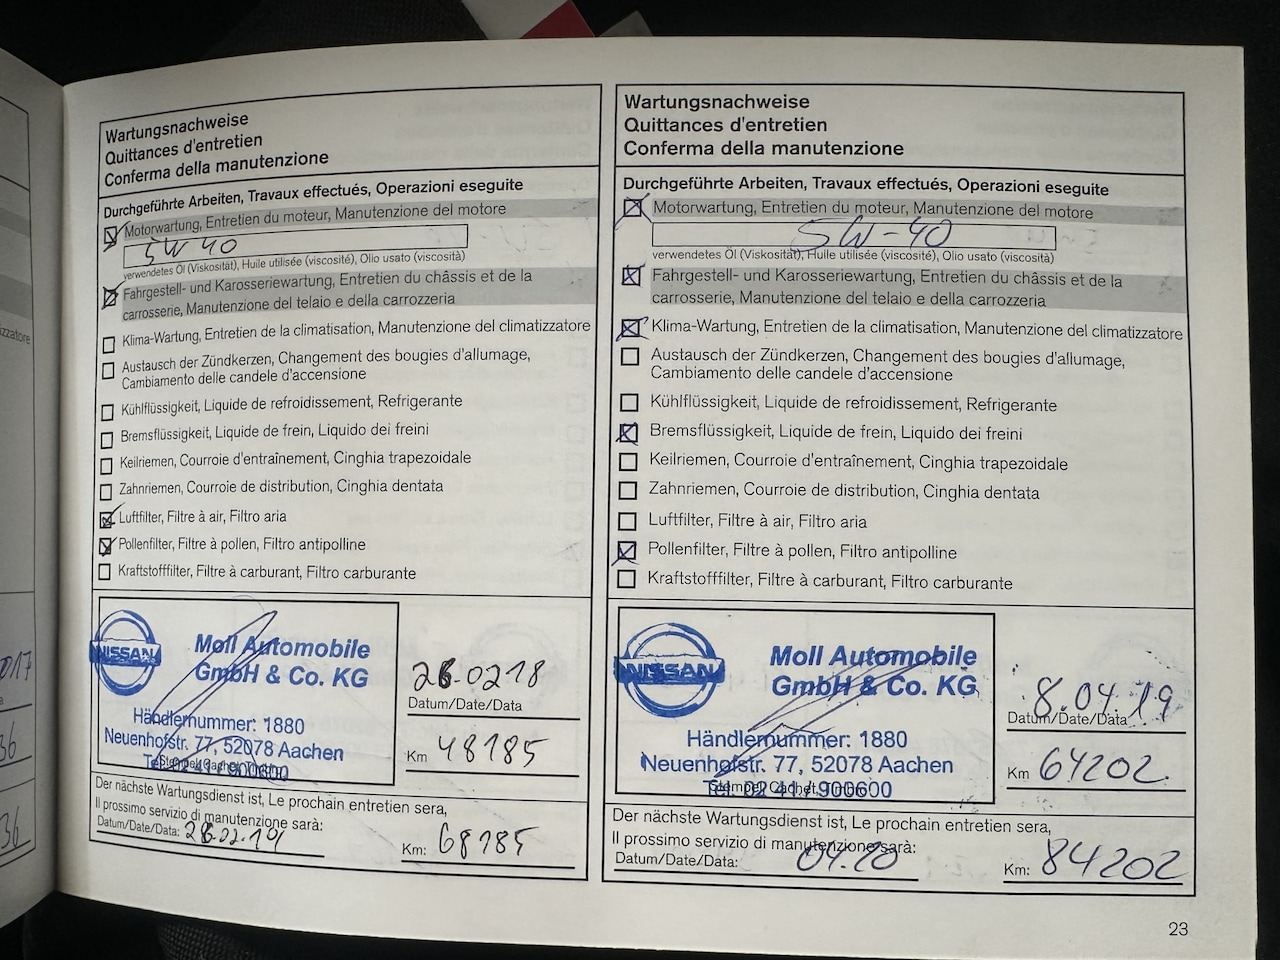 Wartungsnachweise
Quittances d'entretien
Conferma della manutenzione
Durchgeführte Arbeiten, Travaux effectués, Operazioni eseguite
Motorwartung, Entretien du moteur, Manutenzione del motore
5W40
verwendetes Öl (Viskosität), Huile utilisée (viscosité), Olio usato (viscosità)
Fahrgestell- und Karosseriewartung, Entretien du châssis et de la
carrosserie, Manutenzione del telaio e della carrozzeria
Klima-Wartung, Entretien de la climatisation, Manutenzione del climatizzatore
Austausch der Zündkerzen, Changement des bougies d'allumage,
Cambiamento delle candele d'accensione
Kühlflüssigkeit, Liquide de refroidissement, Refrigerante
Bremsflüssigkeit, Liquide de frein, Liquido dei freini
Keilriemen, Courroie d'entraînement, Cinghia trapezoidale
Zahnriemen, Courroie de distribution, Cinghia dentata
Luftfilter, Filtre à air, Filtro aria
Pollenfilter, Filtre à pollen, Filtro antipolline
Kraftstofffilter, Filtre à carburant, Filtro carburante
NISSAN
Moll Automobile
GmbH & Co. KG
Händlernummer: 1880
Neuenhofstr. 77, 52078 Aachen
Tel. 02 41 / 900600
26.0218
Datum/Date/Data
Km 48185
Der nächste Wartungsdienst ist, Le prochain entretien sera,
Il prossimo servizio di manutenzione sarà:
Datum/Date/Data: 26.02.19
Km: 68185
Wartungsnachweise
Quittances d'entretien
Conferma della manutenzione
Durchgeführte Arbeiten, Travaux effectués, Operazioni eseguite
Motorwartung, Entretien du moteur, Manutenzione del motore
5W-40
verwendetes Öl (Viskosität), Huile utilisée (viscosité), Olio usato (viscosità)
Fahrgestell- und Karosseriewartung, Entretien du châssis et de la
carrosserie, Manutenzione del telaio e della carrozzeria
Klima-Wartung, Entretien de la climatisation, Manutenzione del climatizzatore
Austausch der Zündkerzen, Changement des bougies d'allumage,
Cambiamento delle candele d'accensione
Kühlflüssigkeit, Liquide de refroidissement, Refrigerante
Bremsflüssigkeit, Liquide de frein, Liquido dei freini
Keilriemen, Courroie d'entraînement, Cinghia trapezoidale
Zahnriemen, Courroie de distribution, Cinghia dentata
Luftfilter, Filtre à air, Filtro aria
Pollenfilter, Filtre à pollen, Filtro antipolline
Kraftstofffilter, Filtre à carburant, Filtro carburante
NISSAN
Moll Automobile
GmbH & Co. KG
Händlernummer: 1880
Neuenhofstr. 77, 52078 Aachen
Tel. 02 41 / 900600
8.04.19
Datum/Date/Data
Km 64202
Der nächste Wartungsdienst ist, Le prochain entretien sera,
Il prossimo servizio di manutenzione sarà:
Datum/Date/Data: 04.20
Km: 84202
23